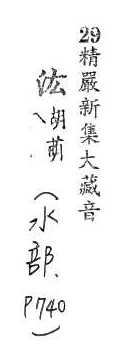 29精嚴新集大藏音
汯胡萌(水部、P740)